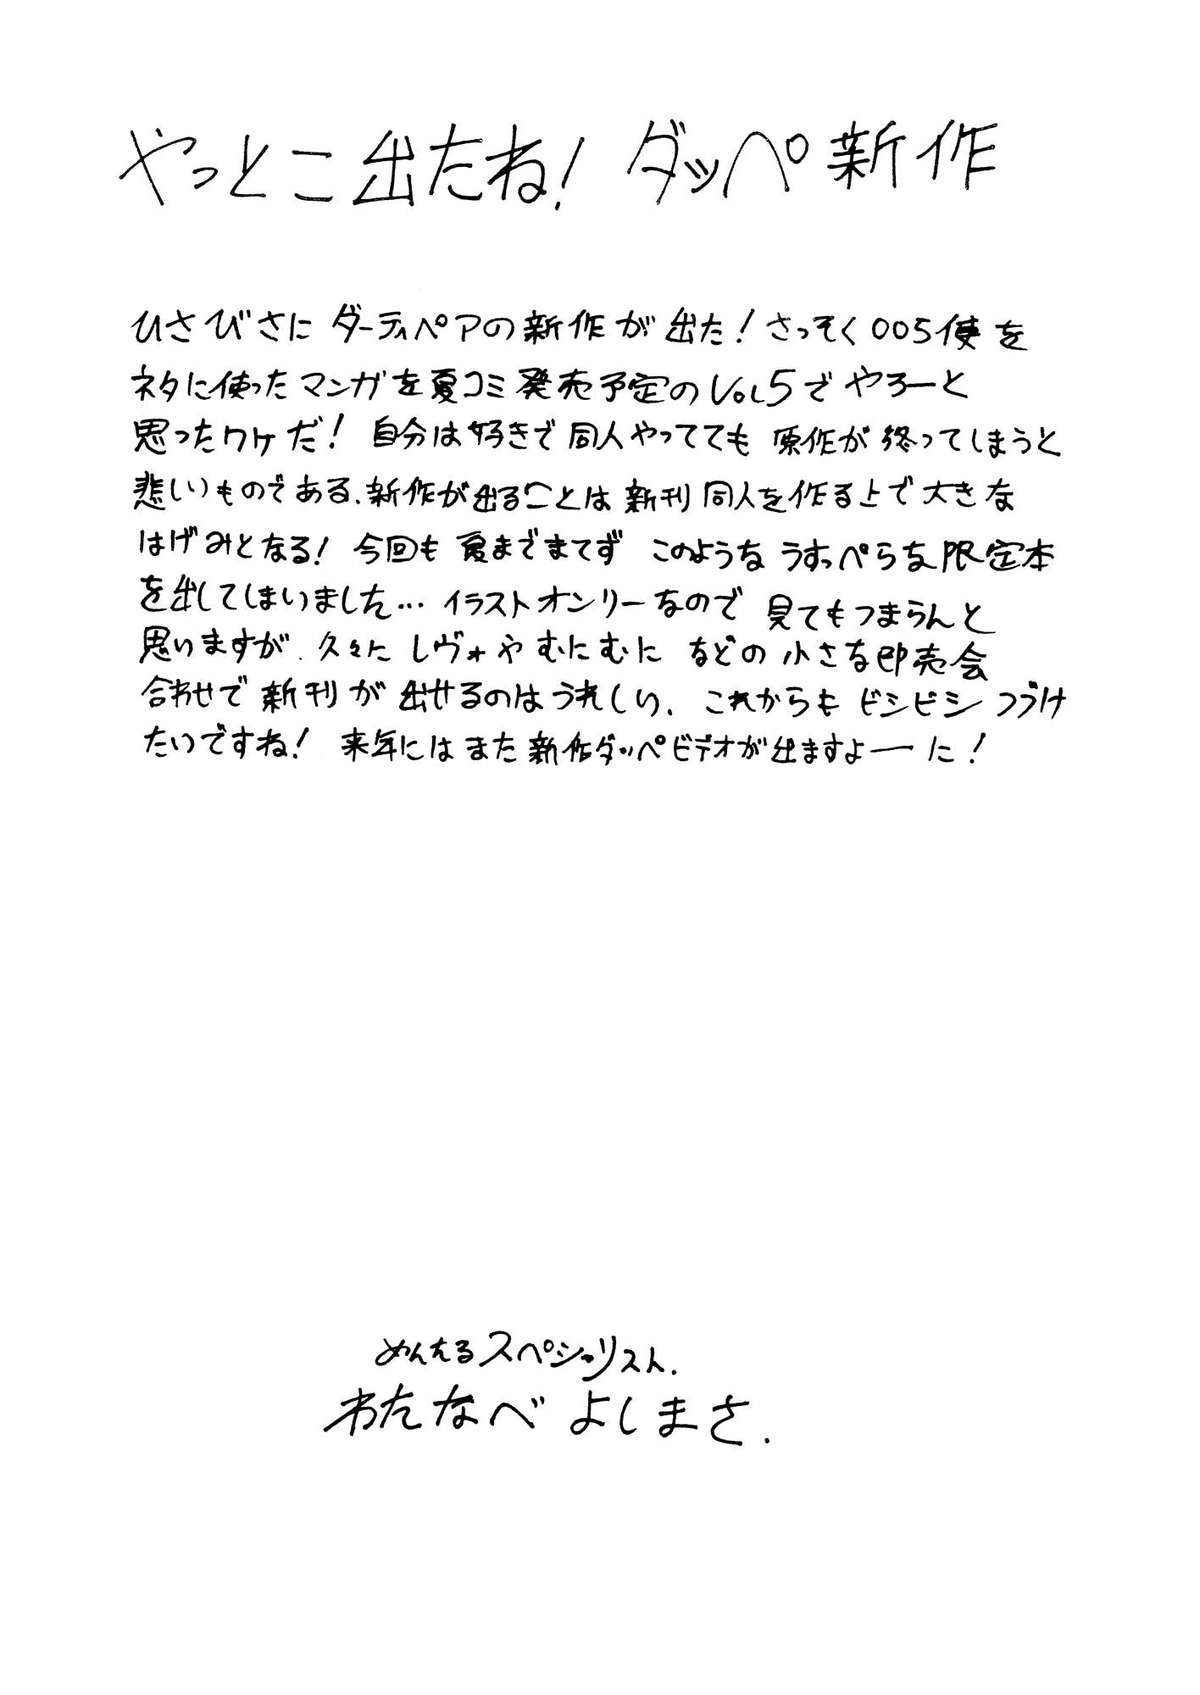 やっとこ出たね! ダッペ新作
ひさびさに ダーティペアの新作が出た! さっそく005便を
ネタに使ったマンガを夏コミ発売予定のVOL5でやろーと
思ったワケだ! 自分は好きで同人やってても 原作が終ってしまうと
悲しいものである、新作が出ることは新刊同人を作る上で大きな
はげみとなる! 今回も夏までまてず このようなうすっぺらな限定本
を出してしまいました… イラストオンリーなので 見てもつまらんと
思いますが、久々に レヴォや むにむに などの 小さな即売会
合わせで新刊が出せるのはうれしい、これからもビシビシつづけ
たいですね! 来年にはまた新作ダッペビデオが出ますよーに!
めんたるスペシャリスト.
わたなべ よしまさ.